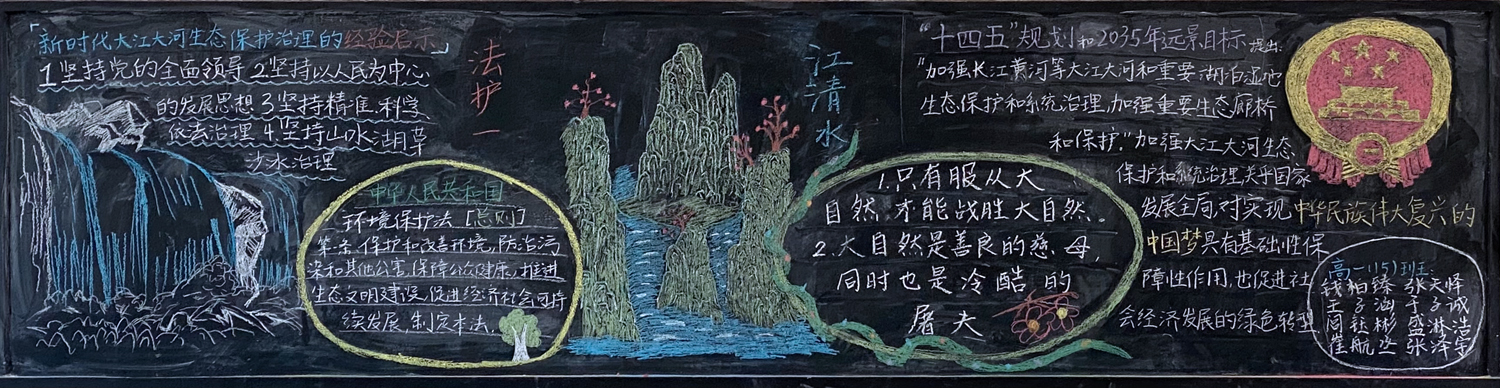 「新时代大江大河生态保护治理的经验启示」
1坚持党的全面领导 2坚持以人民为中心
的发展思想 3坚持精准、科学
依法治理 4坚持山水湖草
沙冰治理
法护一
江清水
中华人民共和国
环境保护法[总则]
第一条、保护和改善环境,防治污
染和其他公害,保障公众健康,推进
生态文明建设,促进经济社会可持
续发展,制定本法。
1.只有服从大
自然,才能战胜大自然。
2.大自然是善良的慈母,
同时也是冷酷的
屠夫
“十四五”规划和2035年远景目标 提出:
“加强长江黄河等大江大河和重要湖泊湿地
生态保护和系统治理,加强重要生态廊桥
和保护,”加强大江大河生态
保护和系统治理关乎国家
发展全局,对实现中华民族伟大复兴的
中国梦具有基础性保
障性作用,也促进社
会经济发展的绿色转型
高一(15)班:
钱柏臻 张天怿
王子涵 于子诚
周钰彬 盛淋洁
崔航丞 张泽宇